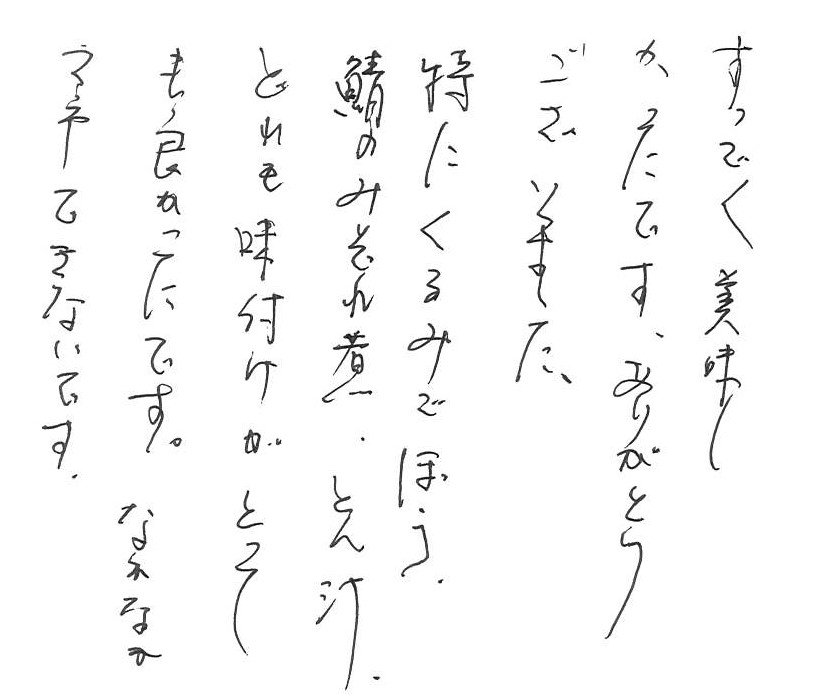 すっごく美味し
かったです、ありがとう
ございました、
特にくるみごぼう、
鯖のみぞれ煮、とん汁、
どれも味付けがとって
も良かったです。なかなか
マネできないです。